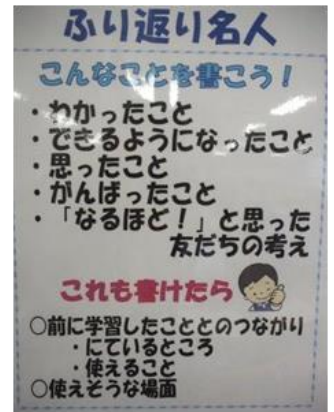 ふり返り名人
こんなことを書こう！
・わかったこと
・できるようになったこと
・思ったこと
・がんばったこと
・「なるほど！」と思った
友だちの考え
これも書けたら
○前に学習したこととのつながり
・にているところ
・使えること
○使えそうな場面